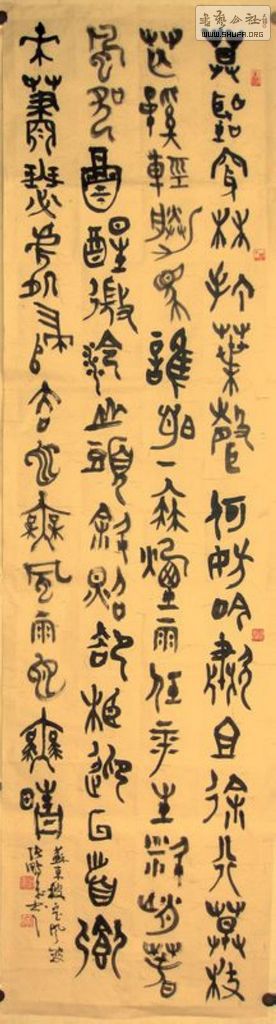 莫聽穿林打葉聲何妨吟嘯且徐行竹杖
芒鞋輕勝馬誰怕一蓑煙雨任平生料峭春
風吹酒醒微冷山頭斜照卻相迎回首向
來蕭瑟處歸去也無風雨也無晴
蘇東坡定風波
WWW.SHUFA.ORG